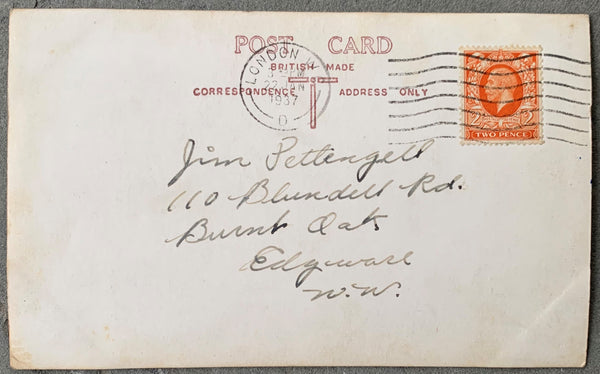 POST CARD
BRITISH MADE
CORRESPONDENCE ADDRESS ONLY
LONDON
22 JAN
1937
D
2 2
TWO PENCE
Jim Pettengell
110 Blundell Rd.
Burnt Oak
Edgware
N.W.